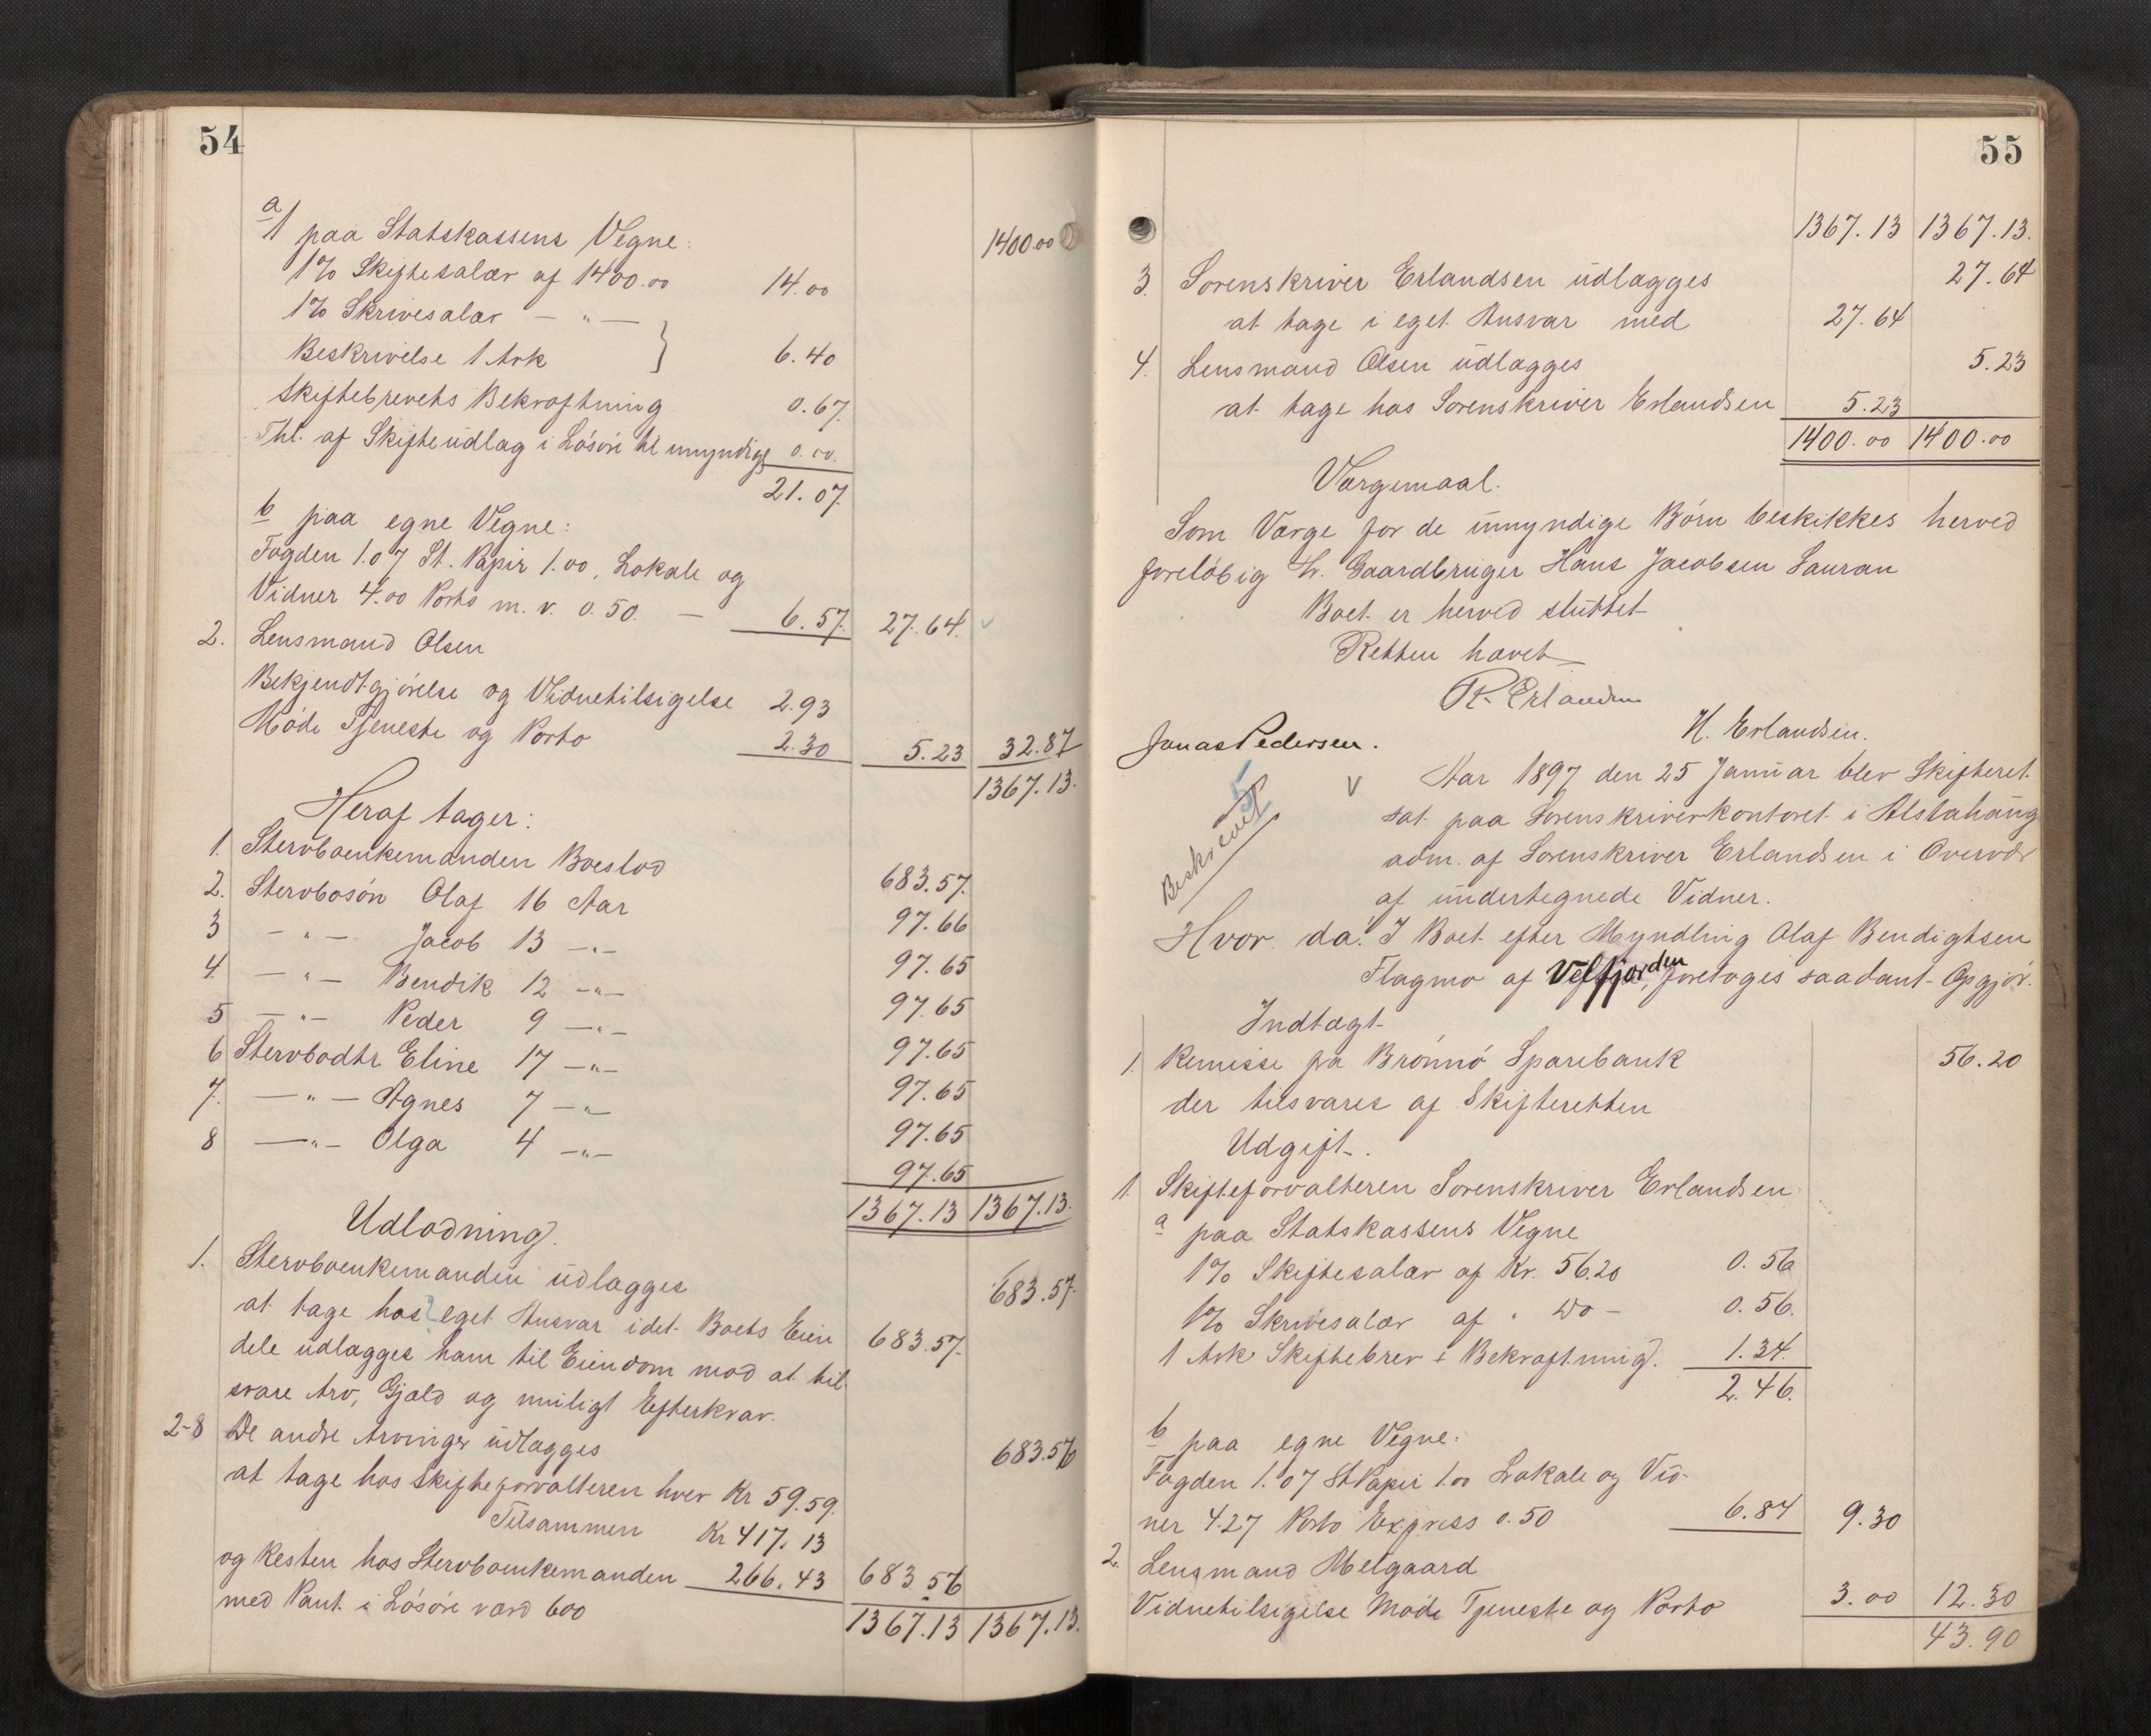 54
a/ paa Statskassens Vegne: 1400.00
1% Skiftesalær af 1400.00 14.00
1% Skrivesalær — " —
Beskrivelse 1 Ark } 6.40
Skiftebrevets Bekræftning 0.67.
Thl. af Skifteudlæg i Løsøre til umyndige 0.00.
21.07.
b paa egne Vegne:
Fogden 1.07 St. Papir 1.00, Lokale og
Vidner 4.00 Porto m. v. 0.50. — 6.57. 27.64.
2. Lensmand Olsen
Bekjendtgjørelse og Vidnetilsigelse 2.93
Møde Tjeneste og Porto 2.30 5.23 32.87
1367.13.
Heraf tager:
1. Stervboenkemanden Boeslod 683.57.
2. Stervbosøn Olaf 16 Aar 97.66
3 — " — Jacob 13 — " — 97.65
4. — " — Bendik 12 — " — 97.65
5 — " — Peder 9 — " — 97.65
6 Stervbodtr Eline 17 — " — 97.65
7. — " — Agnes 7 — " — 97.65
8 — " — Olga 4 — " — 97.65
1367.13 1367.13.
Udlodning.
1. Stervboenkemanden udlægges 683.57.
at tage hos eget Ansvar idet Boets Eien 683.57.
dele udlægges ham til Eiendom mod at til-
svare Arv, Gjæld og muligt Efterkrav.
2-8 De andre Arvinger udlægges 683.56
at tage hos Skifteforvalteren hver Kr 59.59.
Tilsammen Kr 417.13
og Resten hos Stervboenkemanden 266.43 683.56
med Pant i Løsøre værd 600
1367.13 1367.13.
55
1367.13 1367.13.
3. Sorenskriver Erlandsen udlægges 27.64
at tage i eget Ansvar med 27.64
4. Lensmand Olsen udlægges 5.23
at tage hos Sorenskriver Erlandsen 5.23
1400.00 1400.00
Værgemaal.
Som Værge for de umyndige Børn beskikkes herved
foreløbig Hr. Gaardbruger Hans Jacobsen Sauran
Boet er herved sluttet
Retten hævet
R. Erlandsen
H. Erlandsen.
Jonas Pedersen.
Beskrevet
5
V Aar 1897 den 25 Januar blev Skifteret
sat paa Sorenskriverkontoret i Alstahaug
adm. af Sorenskriver Erlandsen i Overvær
af undertegnede Vidner.
Hvor da: I Boet efter Myndling Olaf Bendigtsen
Flagmo af Velfjorden, foretoges saadant Opgjør.
Indtægt
1. Remisse pa Brønnø Sparebank 56.20
der tilsvares af Skifteretten
Udgift.
1. Skifteforvalteren Sorenskriver Erlandsen
a paa Statskassens Vegne
1% Skiftesalær af Kr. 56.20 0.56
1% Skrivesalær af " Do — 0.56.
1 Ark Skiftebrev + Bekræftning. 1.34.
2.46.
b paa egne Vegne:
Fogden 1.07 St Papir 1.00 Lokale og Vid-
ner 4.27 Porto Express 0.50 6.84 9.30
2. Lensmand Melgaard
Vidnetilsigelse Møde Tjeneste og Porto 3.00 12.30
43.90